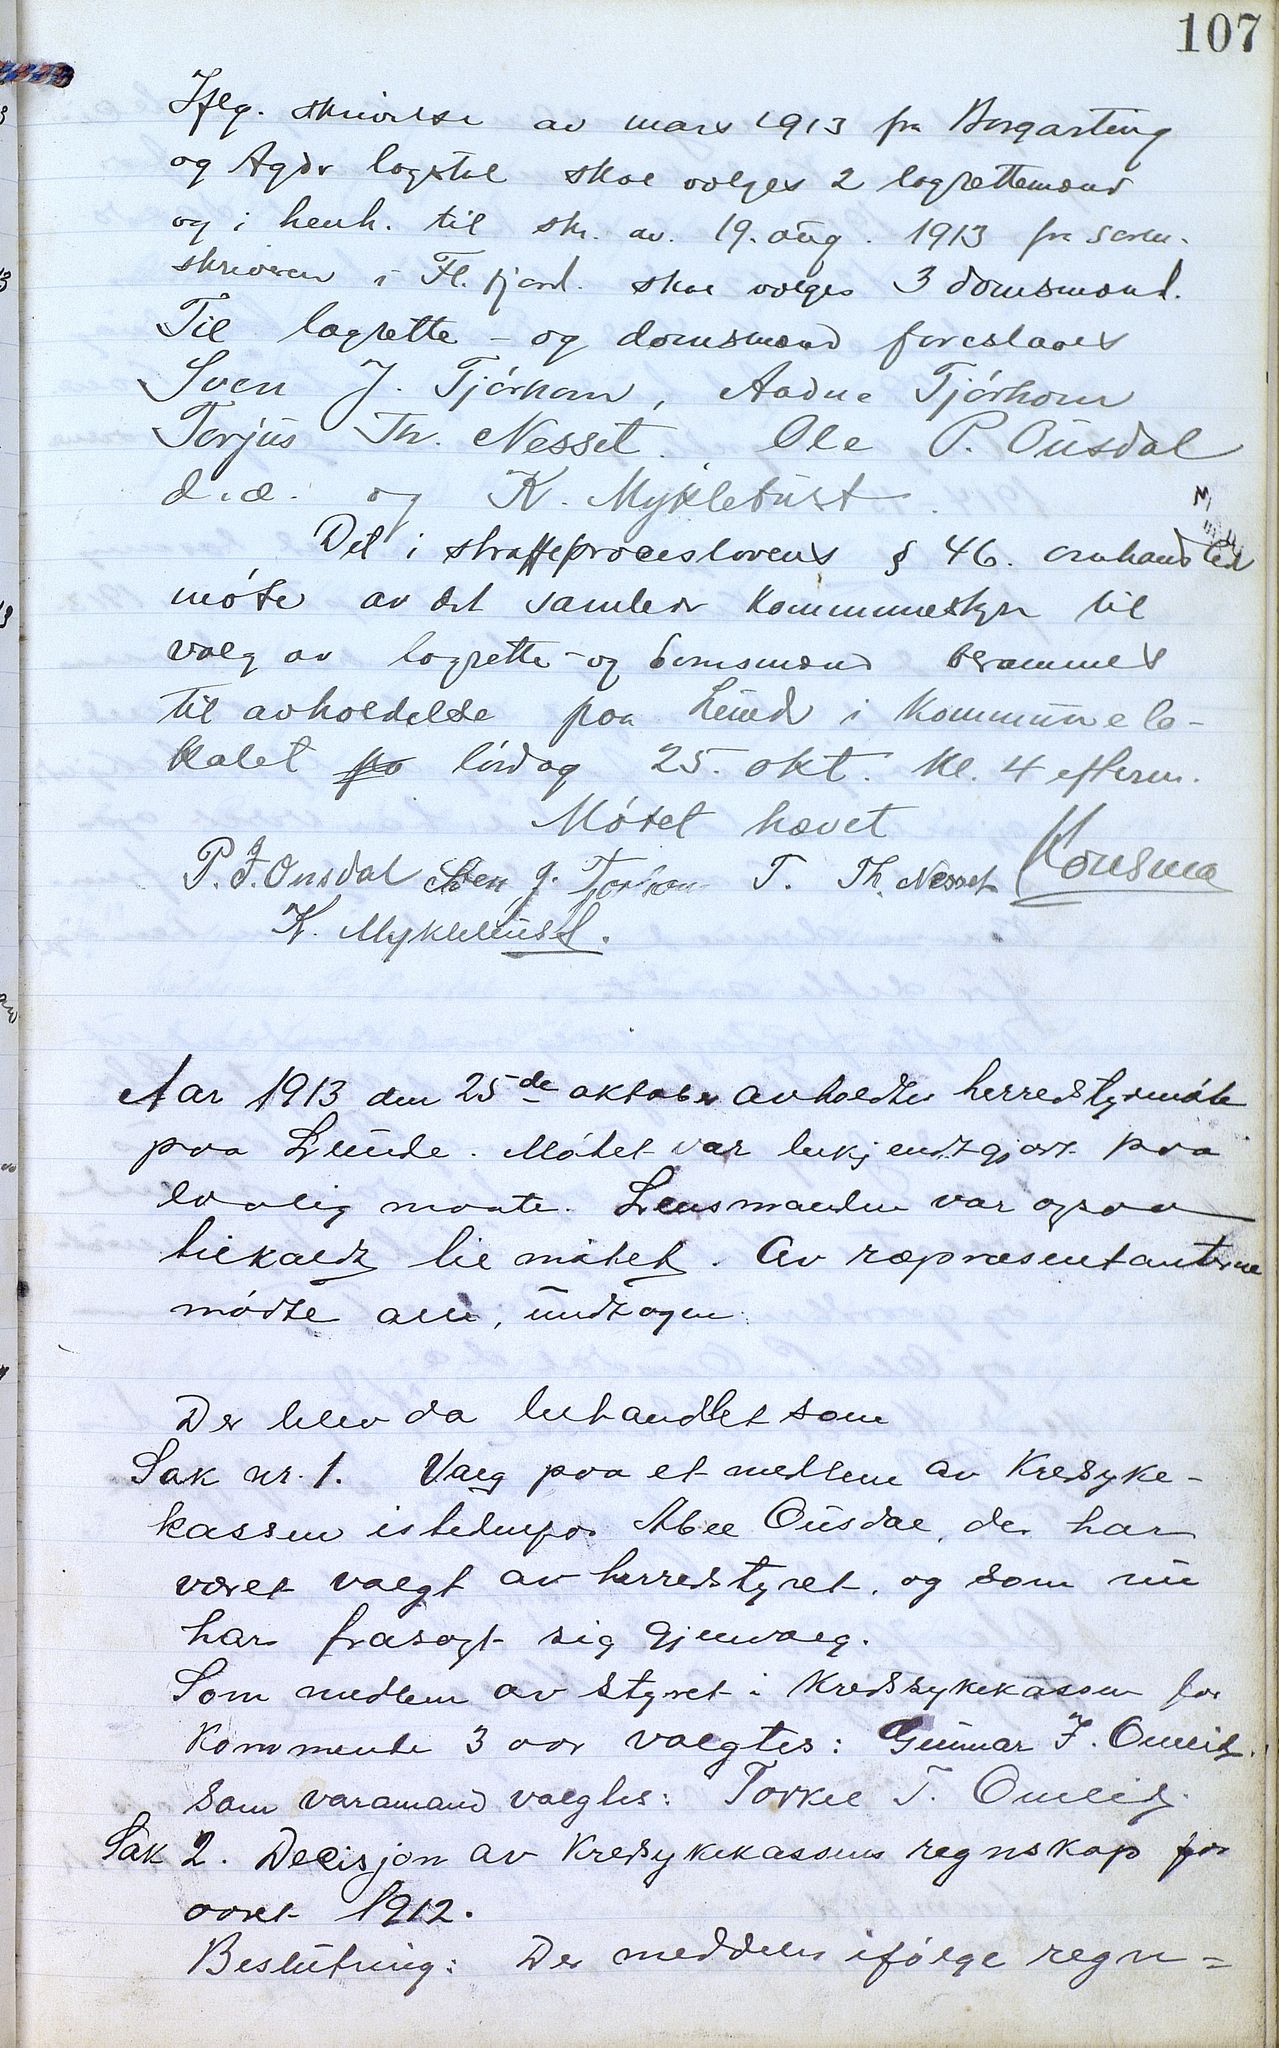 107
Iflg. skrivelse av mars 1913 fra Borgarting
og Agder lagstol skal vælges 2 lagrettemænd
og i henh. til skr. av. 19. aug. 1913 fra soren-
skriveren i Fl.fjord. skal vælges 3 domsmænd.
Til lagrette- og domsmænd foreslaaes
Sven J. Tjórhom, Aadne Tjórhom
Torjus Th. Nesset. Ole P. Ousdal
d.æ. og K. Myklebust.
Det i straffeproceslovens § 46. omhandled
møte av det samlede kommunestyre til
valg av lagrette- og domsmænd berammes
til avholdelse paa Lunde i kommunelo-
kalet på lördag 25. okt. kl. 4 efterm.
Mótet hævet
P. J. Ousdal Sven J. Tjorhom T. Th. Nesset Kousmo
K. Myklebust.
Aar 1913 den 25de oktober avholdtes herredstyrmóte
paa Lunde. Mótet var bekjendtgjort paa
lovlig maate. Lensmanden var ogsaa
tilkaldt til mótet. Av ræpræsentanterne
mødte alle, undtagen
Der blev da behandlet som
Sak nr. 1. Valg paa et medlem av Kredsyke-
kassen istedenfor Abel Ousdal, der har
været valgt av herredstyret, og som nu
har frasagt sig gjenvalg.
Som medlem av styret i Kredssykekassen for
kommende 3 aar valgtes: Gunnar F. Omlid.
Som varamand valgtes: Torkel T. Omlid.
Sak 2. Decisjon av Kredsykekassens regnskap for
aaret 1912.
Beslutning: Der meddeles ifólge regn=